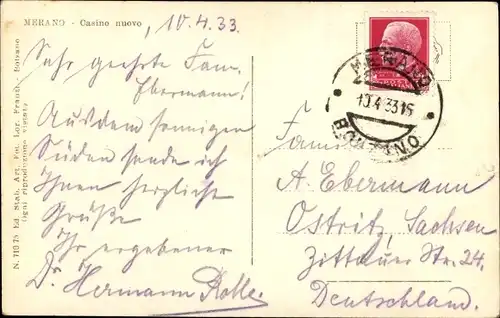 MERANO - Casino nuovo
10.4.33
Sehr geehrte Fam.
Ebermann!
Aus dem sonnigen
Süden sende ich
Ihnen herzliche
Grüße
Ihr ergebener
Dr. Hermann Rolle.
MERANO
10.4.33 15
Familie
A. Ebermann
Ostritz, Sachsen
Zittauer Str. 24.
Deutschland.
Ed. Stab. Art. Fot. Lor. Fränzl, Bolzano
Ogni riproduzione vietata